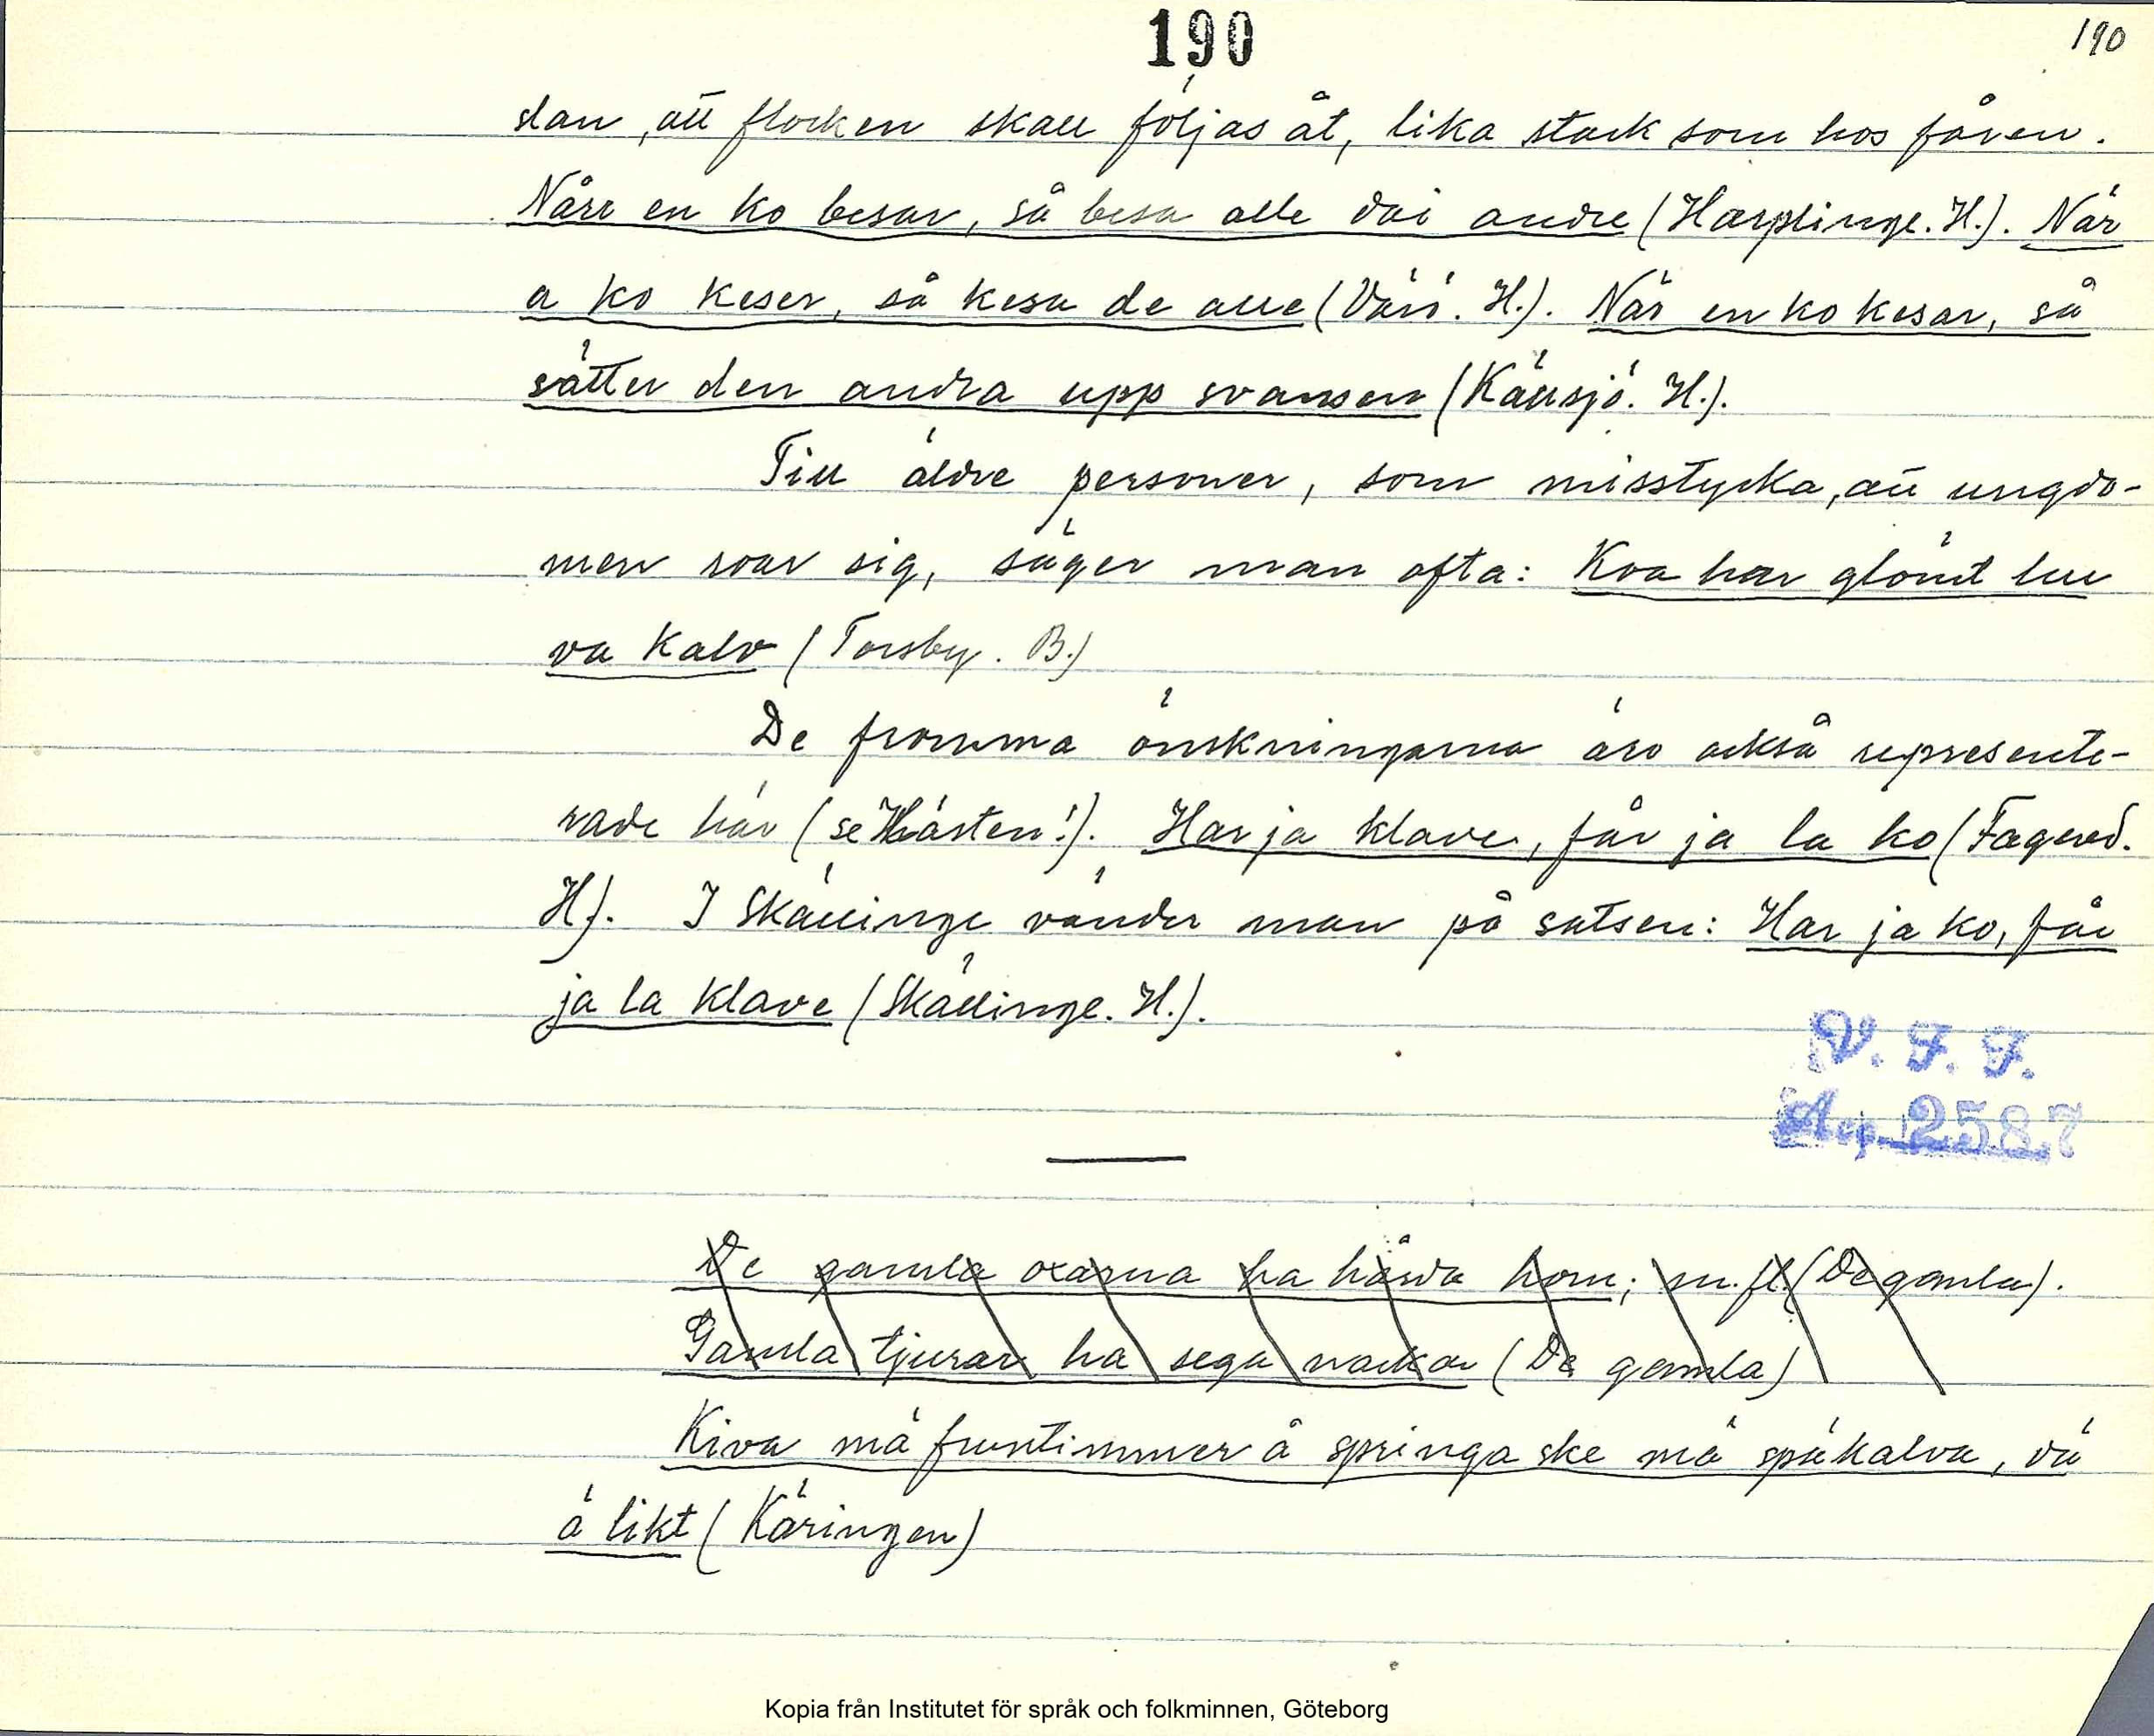 190
190
slan, att flocken skall följas åt, lika stark som hos fåren.
Nårr en ko besar, så besa alle däi andre (Harplinge. H.). När
a ko keser, så kesa de alle (Värö. H.). När en ko kesar, så
sätter den andra upp svansen (Källsjö. H.).
Till äldre personer, som misstycka, att ungdo-
men roar sig, säger man ofta: Koa har glömt hu
va kalv (Torsby. B.)
De fromma önskningarna äro också represente-
rade här (se Hästen!). Har ja klave, får ja la ko (Fagered.
H). I Skällinge vänder man på satsen: Har ja ko, får
ja la klave (Skällinge. H.).
V. F. F.
Acc. 2587
De gamla oxarna ha hårda horn; m. fl. (De gamla).
Gamla tjurar ha sega nackar (De gamla)
Kiva mä fruntimmer å springa ske mä späkalva, dä
ä likt (Käringen)
Kopia från Institutet för språk och folkminnen, Göteborg